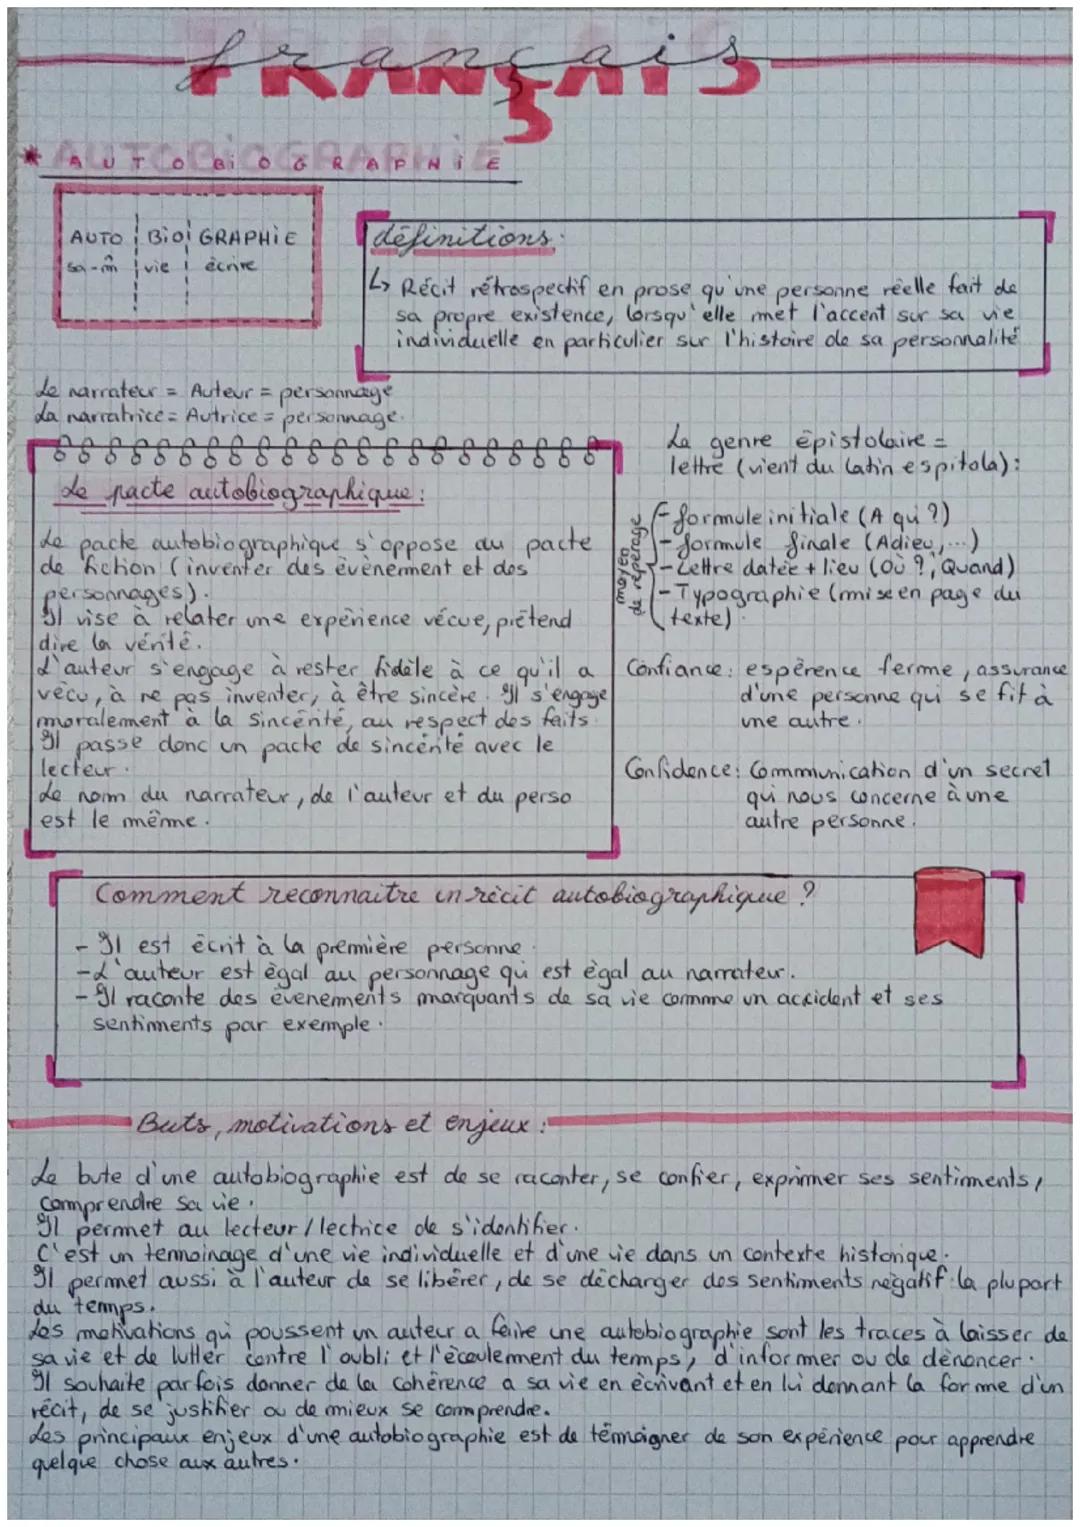 français
FRANÇAIS
* AUTOBIOGRAPHIE
AUTO BIO GRAPHIE
sa-m̂ vie écrire
définitions:
↳ Récit rétrospectif en prose qu'une personne réelle fait de
sa propre existence, lorsqu'elle met l'accent sur sa vie
individuelle en particulier sur l'histoire de sa personnalité
Le narrateur = Auteur = personnage
La narratrice = Autrice = personnage.
Le pacte autobiographique:
Le pacte autobiographique s'oppose au pacte
de fiction (inventer des évènement et des
personnages).
Il vise à relater une expérience vécue, prétend
dire la vérité.
L'auteur s'engage à rester fidèle à ce qu'il a
vécu, à ne pas inventer, à être sincère. Il s'engage
moralement à la sincérité, au respect des faits.
Il passe donc un pacte de sincérité avec le
lecteur.
Le nom du narrateur, de l'auteur et du perso
est le même.
La genre épistolaire =
lettre (vient du latin espitola):
moyen
de repérage
- formule initiale (A qui?)
- formule finale (Adieu,...)
- Lettre datée + lieu (Où?, Quand)
- Typographie (mise en page du
texte).
Confiance: espérence ferme, assurance
d'une personne qui se fit à
une autre.
Confidence: Communication d'un secret
qui nous concerne à une
autre personne.
Comment reconnaitre un récit autobiographique?
- Il est écrit à la première personne.
- L'auteur est égal au personnage qui est égal au narrateur.
- Il raconte des évenements marquants de sa vie comme un accident et ses
sentiments par exemple.
Buts, motivations et enjeux:
Le bute d'une autobiographie est de se raconter, se confier, exprimer ses sentiments,
comprendre sa vie.
Il permet au lecteur/lectrice de s'identifier.
C'est un temoinage d'une vie individuelle et d'une vie dans un contexte historique.
Il permet aussi à l'auteur de se libérer, de se décharger des sentiments négatif la plupart
du temps.
Les motivations qui poussent un auteur a faire une autobiographie sont les traces à laisser de
sa vie et de lutter contre l'oubli et l'écoulement du temps, d'informer ou de dénoncer.
Il souhaite parfois donner de la cohérence a sa vie en écrivant et en lui donnant la forme d'un
récit, de se justifier ou de mieux se comprendre.
Les principaux enjeux d'une autobiographie est de témoigner de son expérience pour apprendre
quelque chose aux autres.